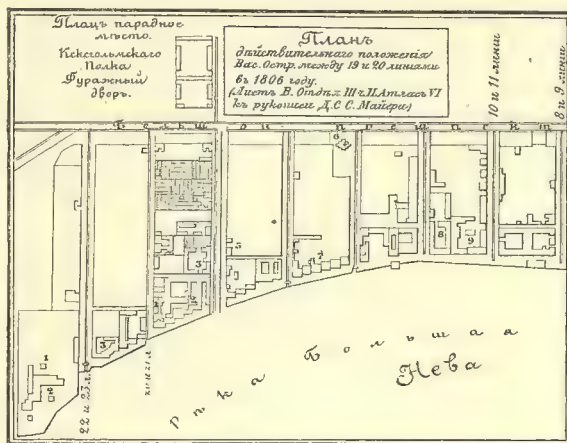 Плацъ парадное
мѣсто.
Кексгольмскаго
Полка
Фуражный
дворъ.
Планъ
дѣйствительнаго положенія
Вас. Остр. между 19 и 20 линіями
въ 1806 году.
(Листъ В. Отдѣл III ч II Атласъ VI
къ рукописи Д. С. С. Майера)
10 и 11 линіи
8 и 9 линіи
Большой проспектъ
6
5
7
8
9
3
3
1
2
22 и 23 л.
рѣка Большая
Нева